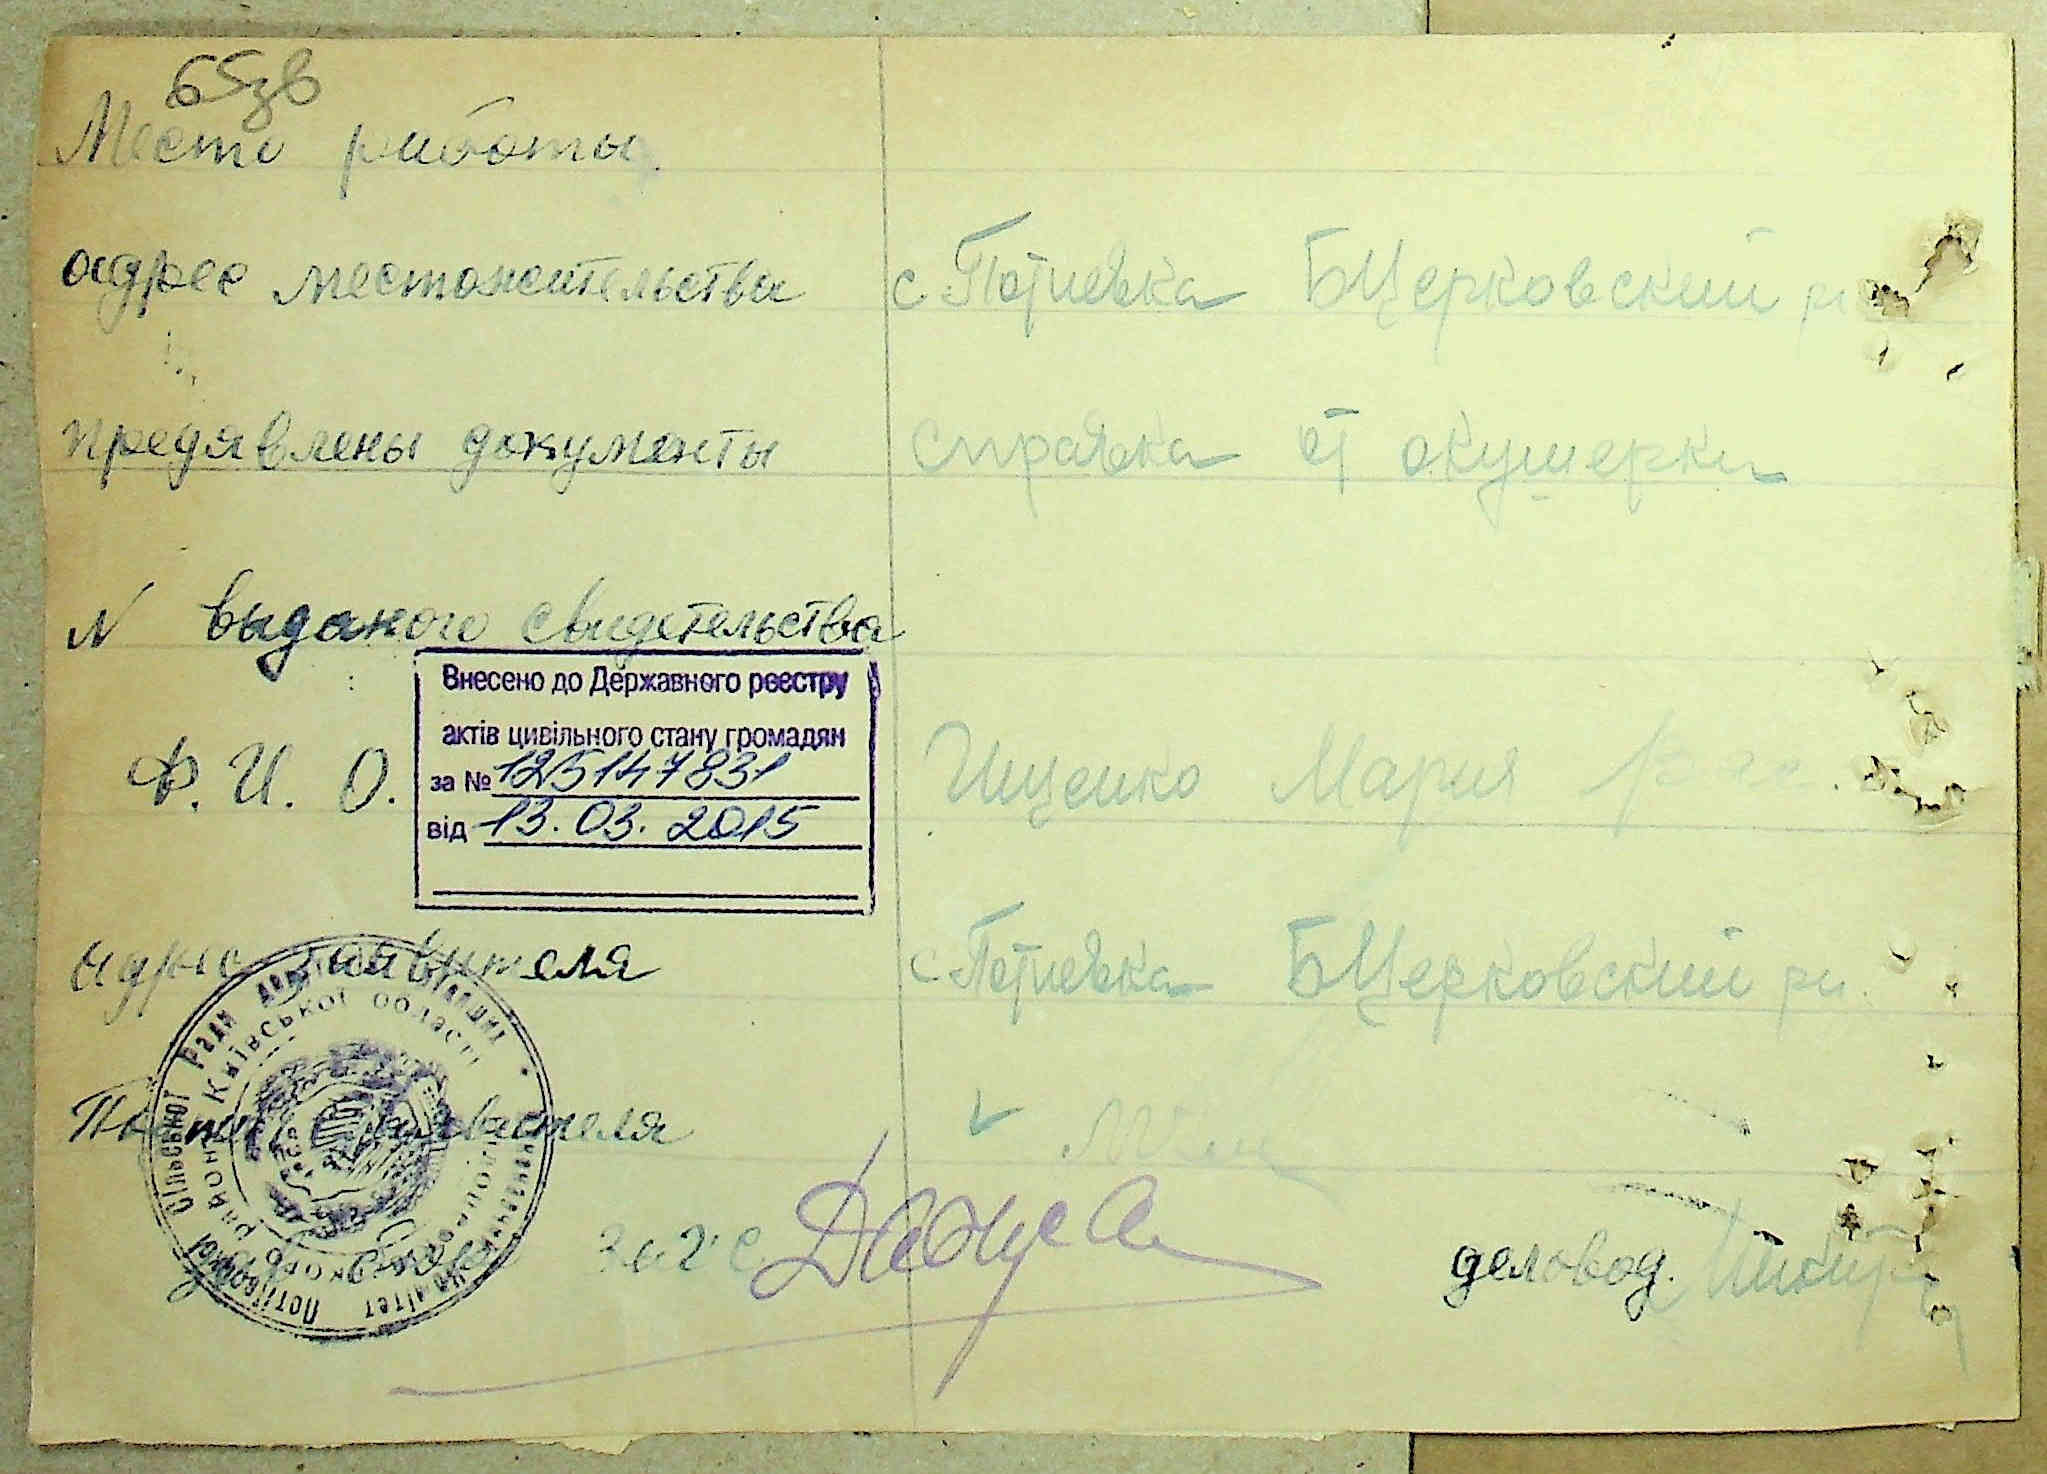 65зв
Место работы
адрес местожительства с Потиевка БЦерковский
предявлены документы справка от акушерки
N выданого свидетельства
Внесено до Державного реєстру
актів цивільного стану громадян
за № 125147831
від 13.03.2015
Ф. И. О. Ищенко Мария
адрес заявителя с Потиевка БЦерковский
заявителя
Сільської Ради депутатів трудящих
Київської області
загс
деловод.